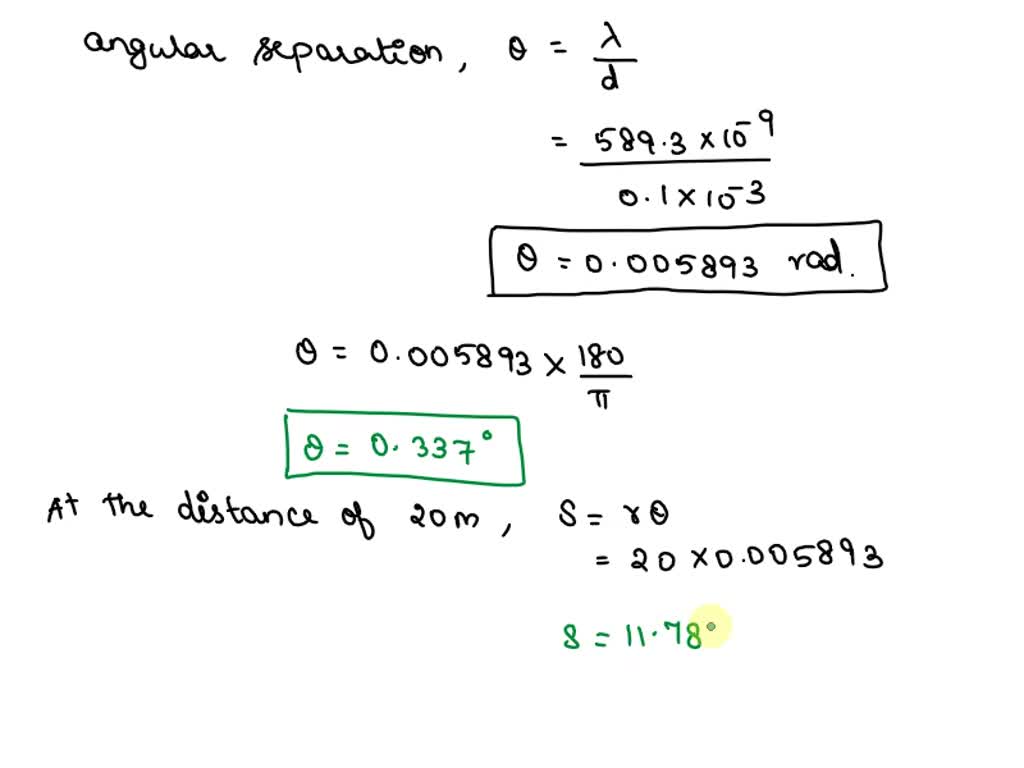 angular separation, θ = λ/d
= 589.3 × 10⁻⁹ / 0.1 × 10⁻³
θ = 0.005893 rad.
θ = 0.005893 × 180/π
θ = 0.337°
At the distance of 20m, S = rθ
= 20 × 0.005893
S = 11.78